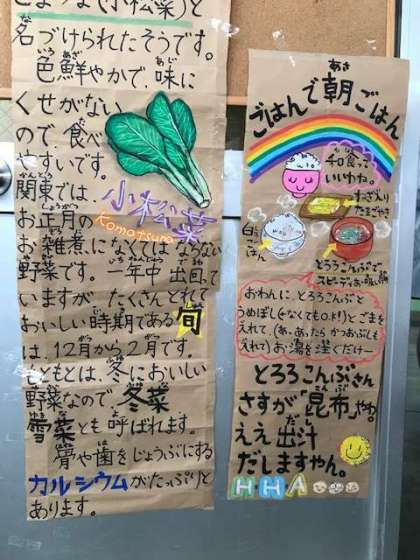 こまつな(小松菜)と
名づけられたそうです。
色鮮やかで、味に
くせがない
ので、食べ
やすいです。
関東では、
お正月の
お雑煮になくてはならない
野菜です。一年中出回って
いますが、たくさんとれて
おいしい時期である旬
は、12月から2月です。
もともとは、冬においしい
野菜なので、冬菜
雪菜とも呼ばれます。
骨や歯をじょうぶにする
カルシウムがたっぷりと
あります。
小松菜
Komatsuna
ごはんで朝ごはん
和食って
いいわね。
ねぎ入り
たまごやき
白い
ごはん
とろろこんぶで
スピーディーお吸い物
おわんに、とろろこんぶと
うめぼし(なくてもO.K!)とごまを
入れて、(あ、あったらかつおぶしも
入れて)お湯を注ぐだけー
とろろこんぶさん
さすが「昆布」やわ。
ええ出汁
だしますやん。
H・H・A